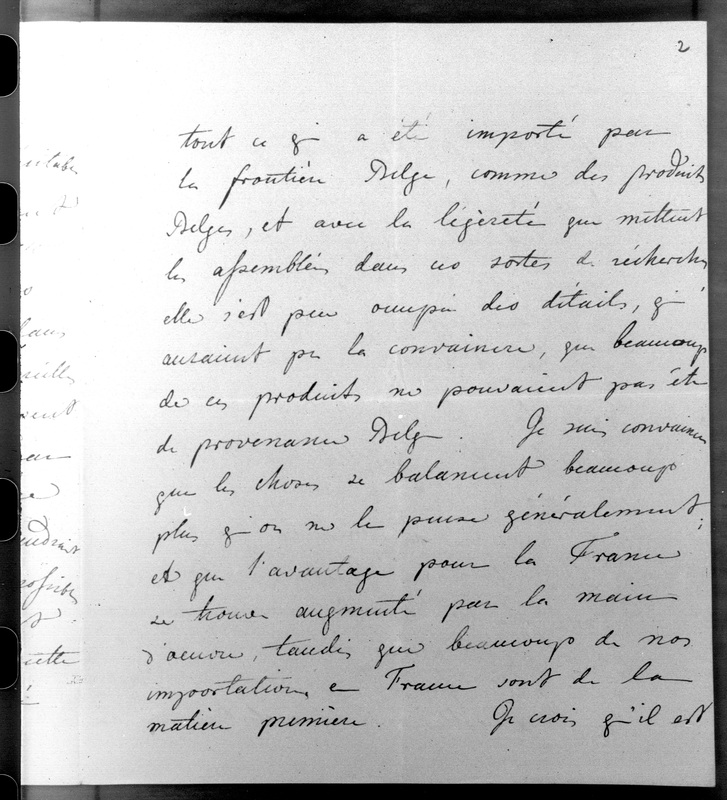 2
tout ce qi a été importé par
la frontière Belge, comme des produits
Belges, et avec la légèreté que mettent
les assemblées dans ces sortes de récherches
elle s'est peu occupée des détails, qi
auraient pu la convaincre, que beaucoup
de ces produits ne pouvaient pas être
de provenance Belge. Je suis convaincu
que les choses se balancent beaucoup
plus qi on ne le pense généralement;
et que l'avantage pour la France
se trouve augmenté par la main
d'oeuvre, tandis que beaucoup de nos
importations en France sont de la
matière première. Je crois qu'il est